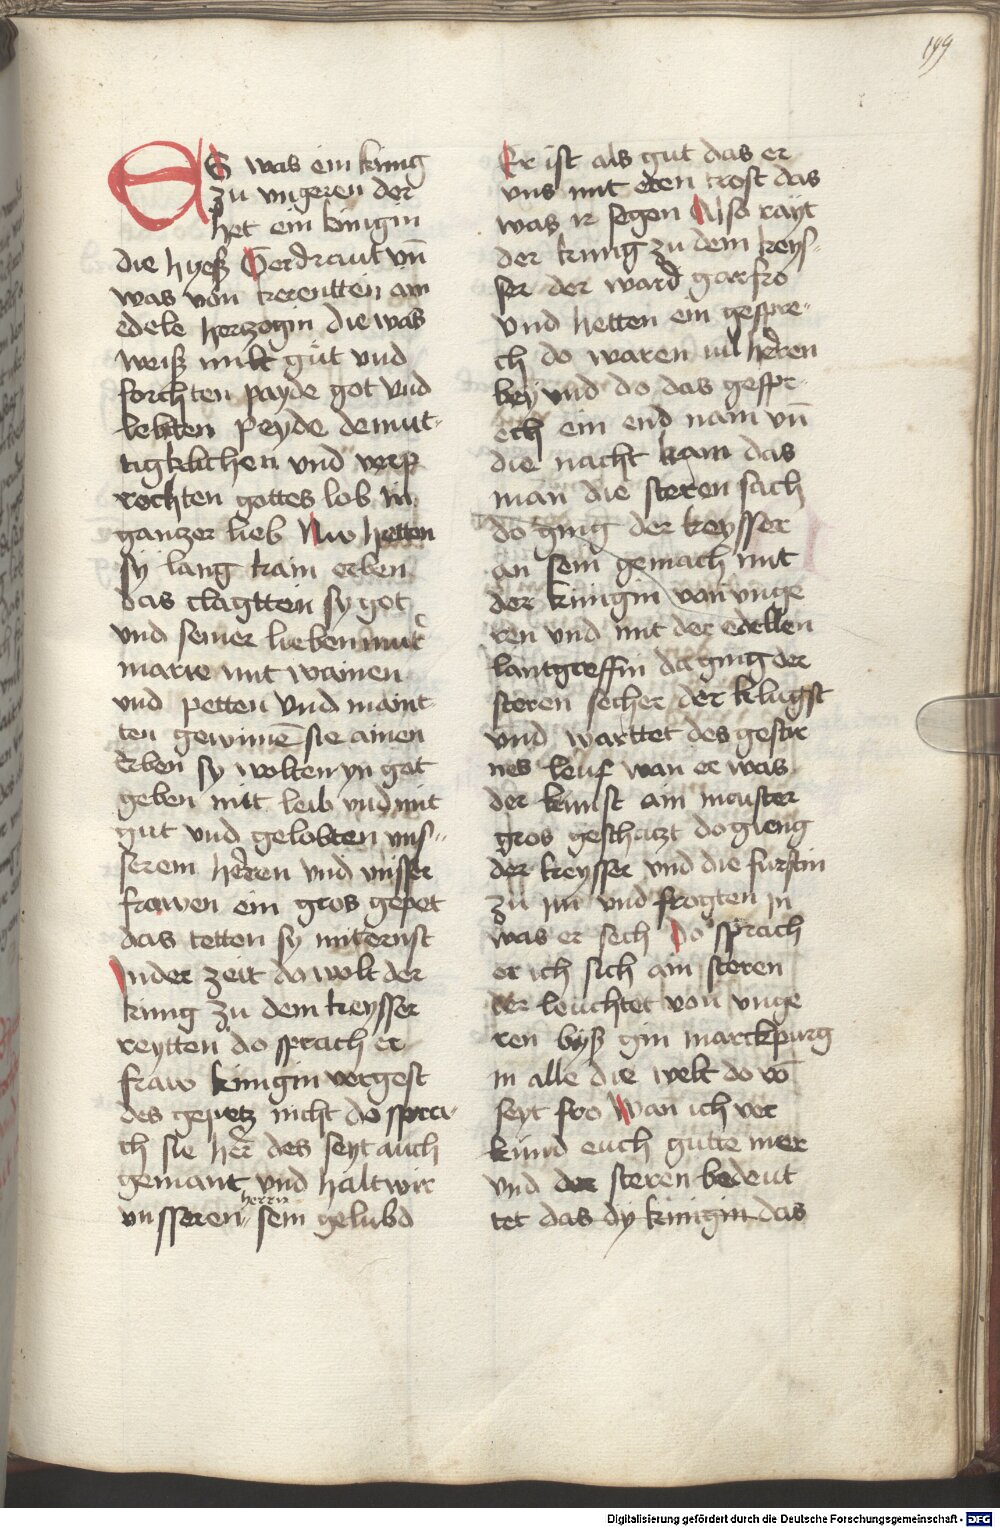 199
ES was ein kung
zu vngeren der
het ein kinigin
die hyeß Gerdraut vn̄
was von kerentten ain
edele herzogin die was
weiß milt gůt vnd
forchten payde got vnd
lebtten peyde demut-
tigklichen vnd verp
rochten gottes lob in
ganczer lieb Nw hetten
sy lang kain erben
das clagtten sy got
vnd seiner lieben mutr̄
marie mit wainen
vnd petten vnd maint-
ten gewinnē sie ainen
Erben sy wolten yn got
geben mit leib vnd mit
gut vnd gelobten vns-
serem herren vnd vnsser
frawen ein gros gepet
das tetten sy mit ernst
In der zeit do wolt der
kung zu dem keysser
reytten do sprach er
fraw kinigin vergest
des gepetz nicht do spra-
ch sie her des seyt auch
gemant vnd halt wir
herrn
vnsseren sein gelubd
Er ist als gut das er
vns mit eren trost das
was ir segen Also rayt
der kung zu dem keys-
ser der ward gar fro
vnd hetten ein gespre-
ch do waren vil herren
bey vnd do das gespr-
ech ein end nam vn̄
die nacht kam das
man die steren sach
do ging der keysser
an sein gemach mit
der kinigin von vnge
ren vnd mit der edellen
lantgreffin da ging der
steren secher der klugst
vnd warttet des gestir
nes leuf wan er was
der kunst ain maister
gros geschatzt do gieng
der keysser vnd die furstin
zu im vnd frogten in
was er sech Do sprach
er ich sich ain steren
der leuchtet von vnge
ren byß gin marckpurg
in alle die welt do vō
seyt fro Wan ich ver
kund euch gutte mer
vnd der steren bedeut
tet das dy kinigin das
Digitalisierung gefördert durch die Deutsche Forschungsgemeinschaft - DFG